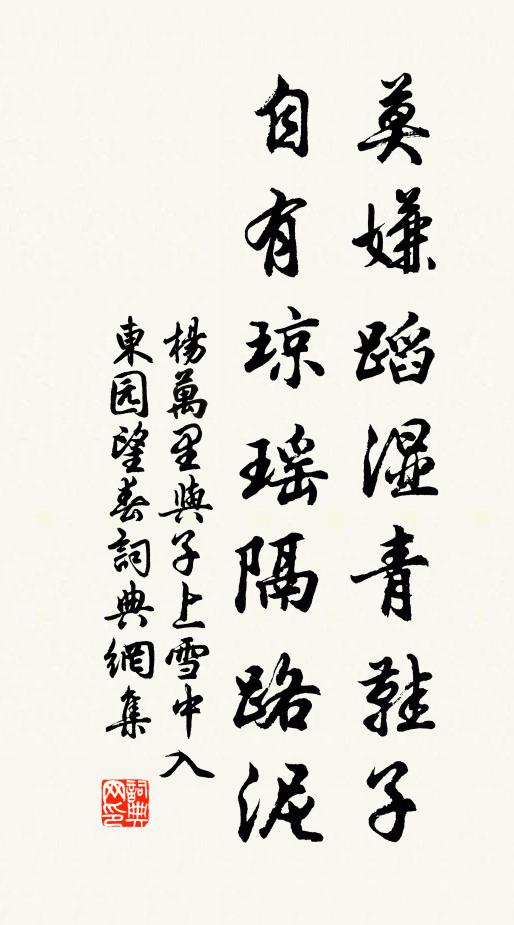 莫嫌蹈湿青鞋子
自有琼瑶隔路泥
楊萬里與子上雪中入
東园望春詞典網集
詞典
网印